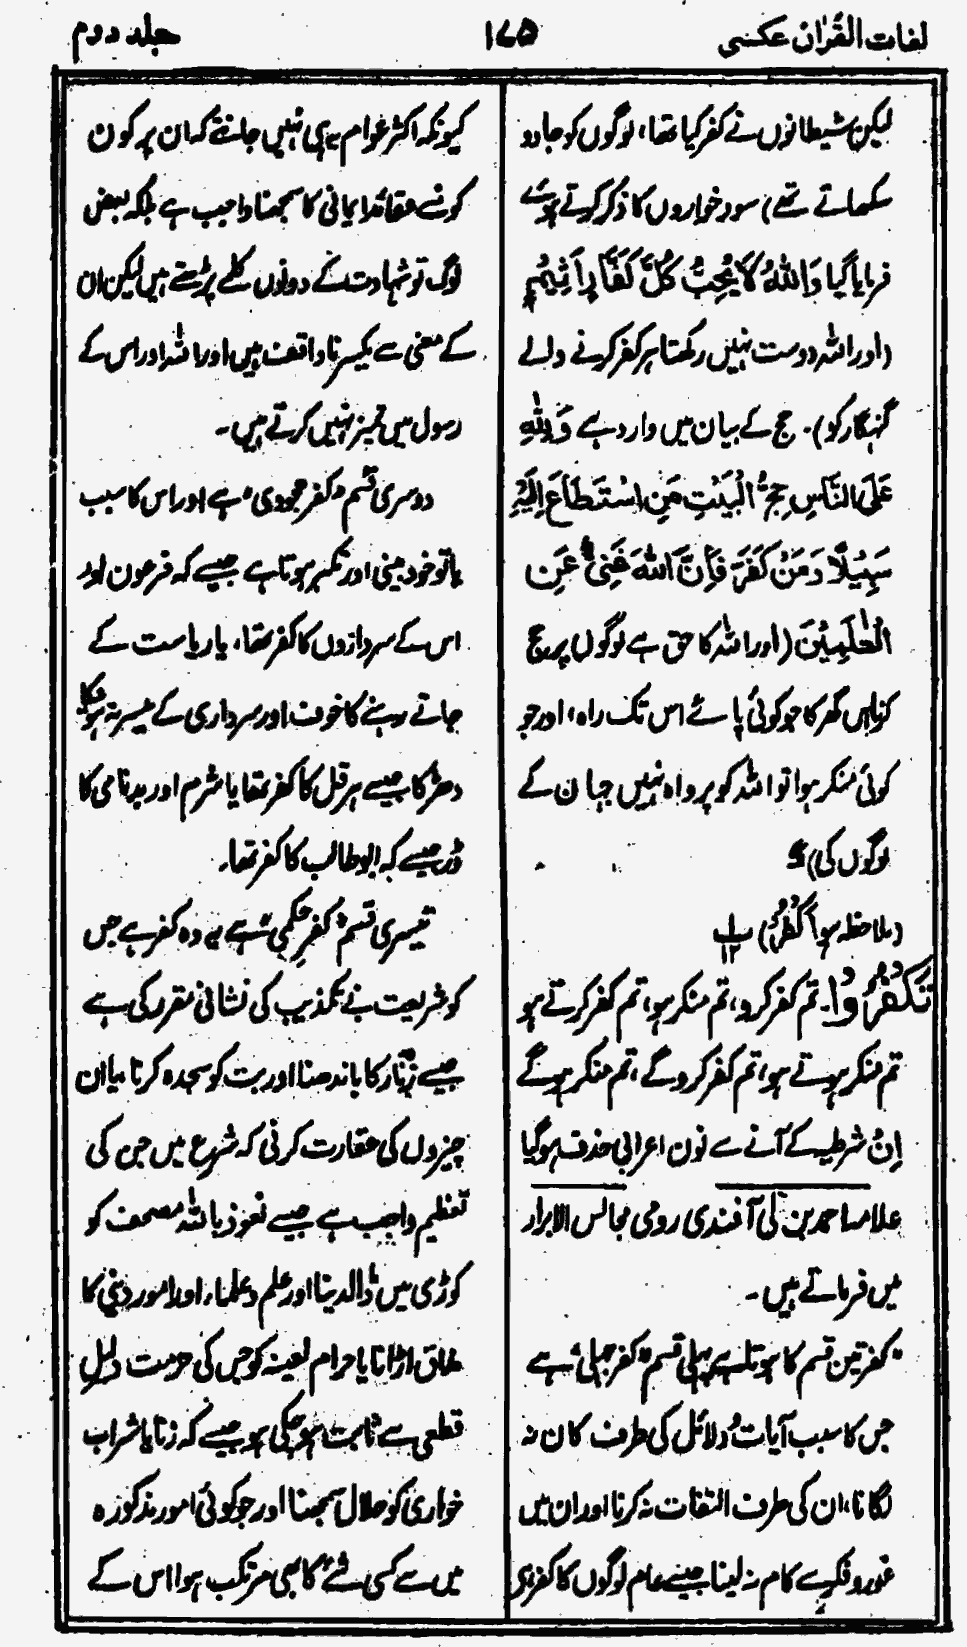 لغات القرآن عکسی
۱۷۵
جلد دوم
لیکن شیطانوں نے کفر کیا تھا، لوگوں کو جادو
سکھاتے تھے) سود خواروں کا ذکر کرتے ہوئے
فرمایا گیا وَاللّٰهُ لَا يُحِبُّ كُلَّ كَفَّارٍ اَثِيْمٍ
(اور اللہ دوست نہیں رکھتا ہر کفر کرنے والے
گنہگار کو)۔ حج کے بیان میں وارد ہے وَلِلّٰهِ
عَلَى النَّاسِ حِجُّ الْبَيْتِ مَنِ اسْتَطَاعَ اِلَيْهِ
سَبِيْلًا وَمَنْ كَفَرَ فَاِنَّ اللّٰهَ غَنِىٌّ عَنِ
الْعٰلَمِيْنَ (اور اللہ کا حق ہے لوگوں پر حج
کرنا اس گھر کا جو کوئی پائے اس تک راہ، اور جو
کوئی منکر ہوا تو اللہ کو پرواہ نہیں جہان کے
لوگوں کی)
(ملاحظہ ہو اَكْفُرُ)
تَكْفُرُوْا۔ تم کفر کرو، تم منکر ہو، تم کفر کرتے ہو
تم منکر ہوتے ہو، تم کفر کرو گے، تم منکر ہو گے
اِنْ شرطیہ کے آنے سے نون اعرابی حذف ہو گیا
علامہ احمد بن آفندی رومی مجالس الابرار
میں فرماتے ہیں۔
"کفر تین قسم کا ہوتا ہے پہلی قسم "کفر جہلی" ہے
جس کا سبب آیات و دلائل کی طرف کان نہ
لگانا، ان کی طرف التفات نہ کرنا اور ان میں
غور و فکر سے کام نہ لینا جیسے عام لوگوں کا کفر ہے
کیونکہ اکثر عوام یہ ہی نہیں جانتے کہ ان پر کون
کونسے عقائد ایمانی کا سمجھنا واجب ہے بلکہ بعض
لوگ تو شہادت کے دونوں کلمے پڑھتے ہیں لیکن ان
کے معنی سے یکسر ناواقف ہیں اور اللہ اور اس کے
رسول میں تمیز نہیں کرتے ہیں۔
دوسری قسم "کفر جحودی" ہے اور اس کا سبب
یا تو خود بینی اور تکبر ہوتا ہے جیسے کہ فرعون اور
اس کے سرداروں کا کفر تھا، یا ریاست کے
جاتے رہنے کا خوف اور سرداری کے میسر نہ ہونیکا
دھڑکا جیسے ہرقل کا کفر تھا یا شرم اور بدنامی کا
ڈر جیسے کہ ابو طالب کا کفر تھا۔
تیسری قسم "کفر حکمی" ہے یہ وہ کفر ہے جس
کو شریعت نے تکذیب کی نشانی مقرر کی ہے
جیسے زنار کا باندھنا اور بت کو سجدہ کرنا یا ان
چیزوں کی حقارت کرنی کہ شرع میں جن کی
تعظیم واجب ہے جیسے نعوذ باللہ مصحف کو
کوڑی میں ڈالدینا اور علم و علماء اور امور دینی کا
مذاق اڑانا یا حرام لعینہ کو جس کی حرمت دلیل
قطعی سے ثابت ہو چکی ہو جیسے کہ زنا یا شراب
خواری کو حلال سمجھنا اور جو کوئی امور مذکورہ
میں سے کسی شئے کا بھی مرتکب ہوا اس کے